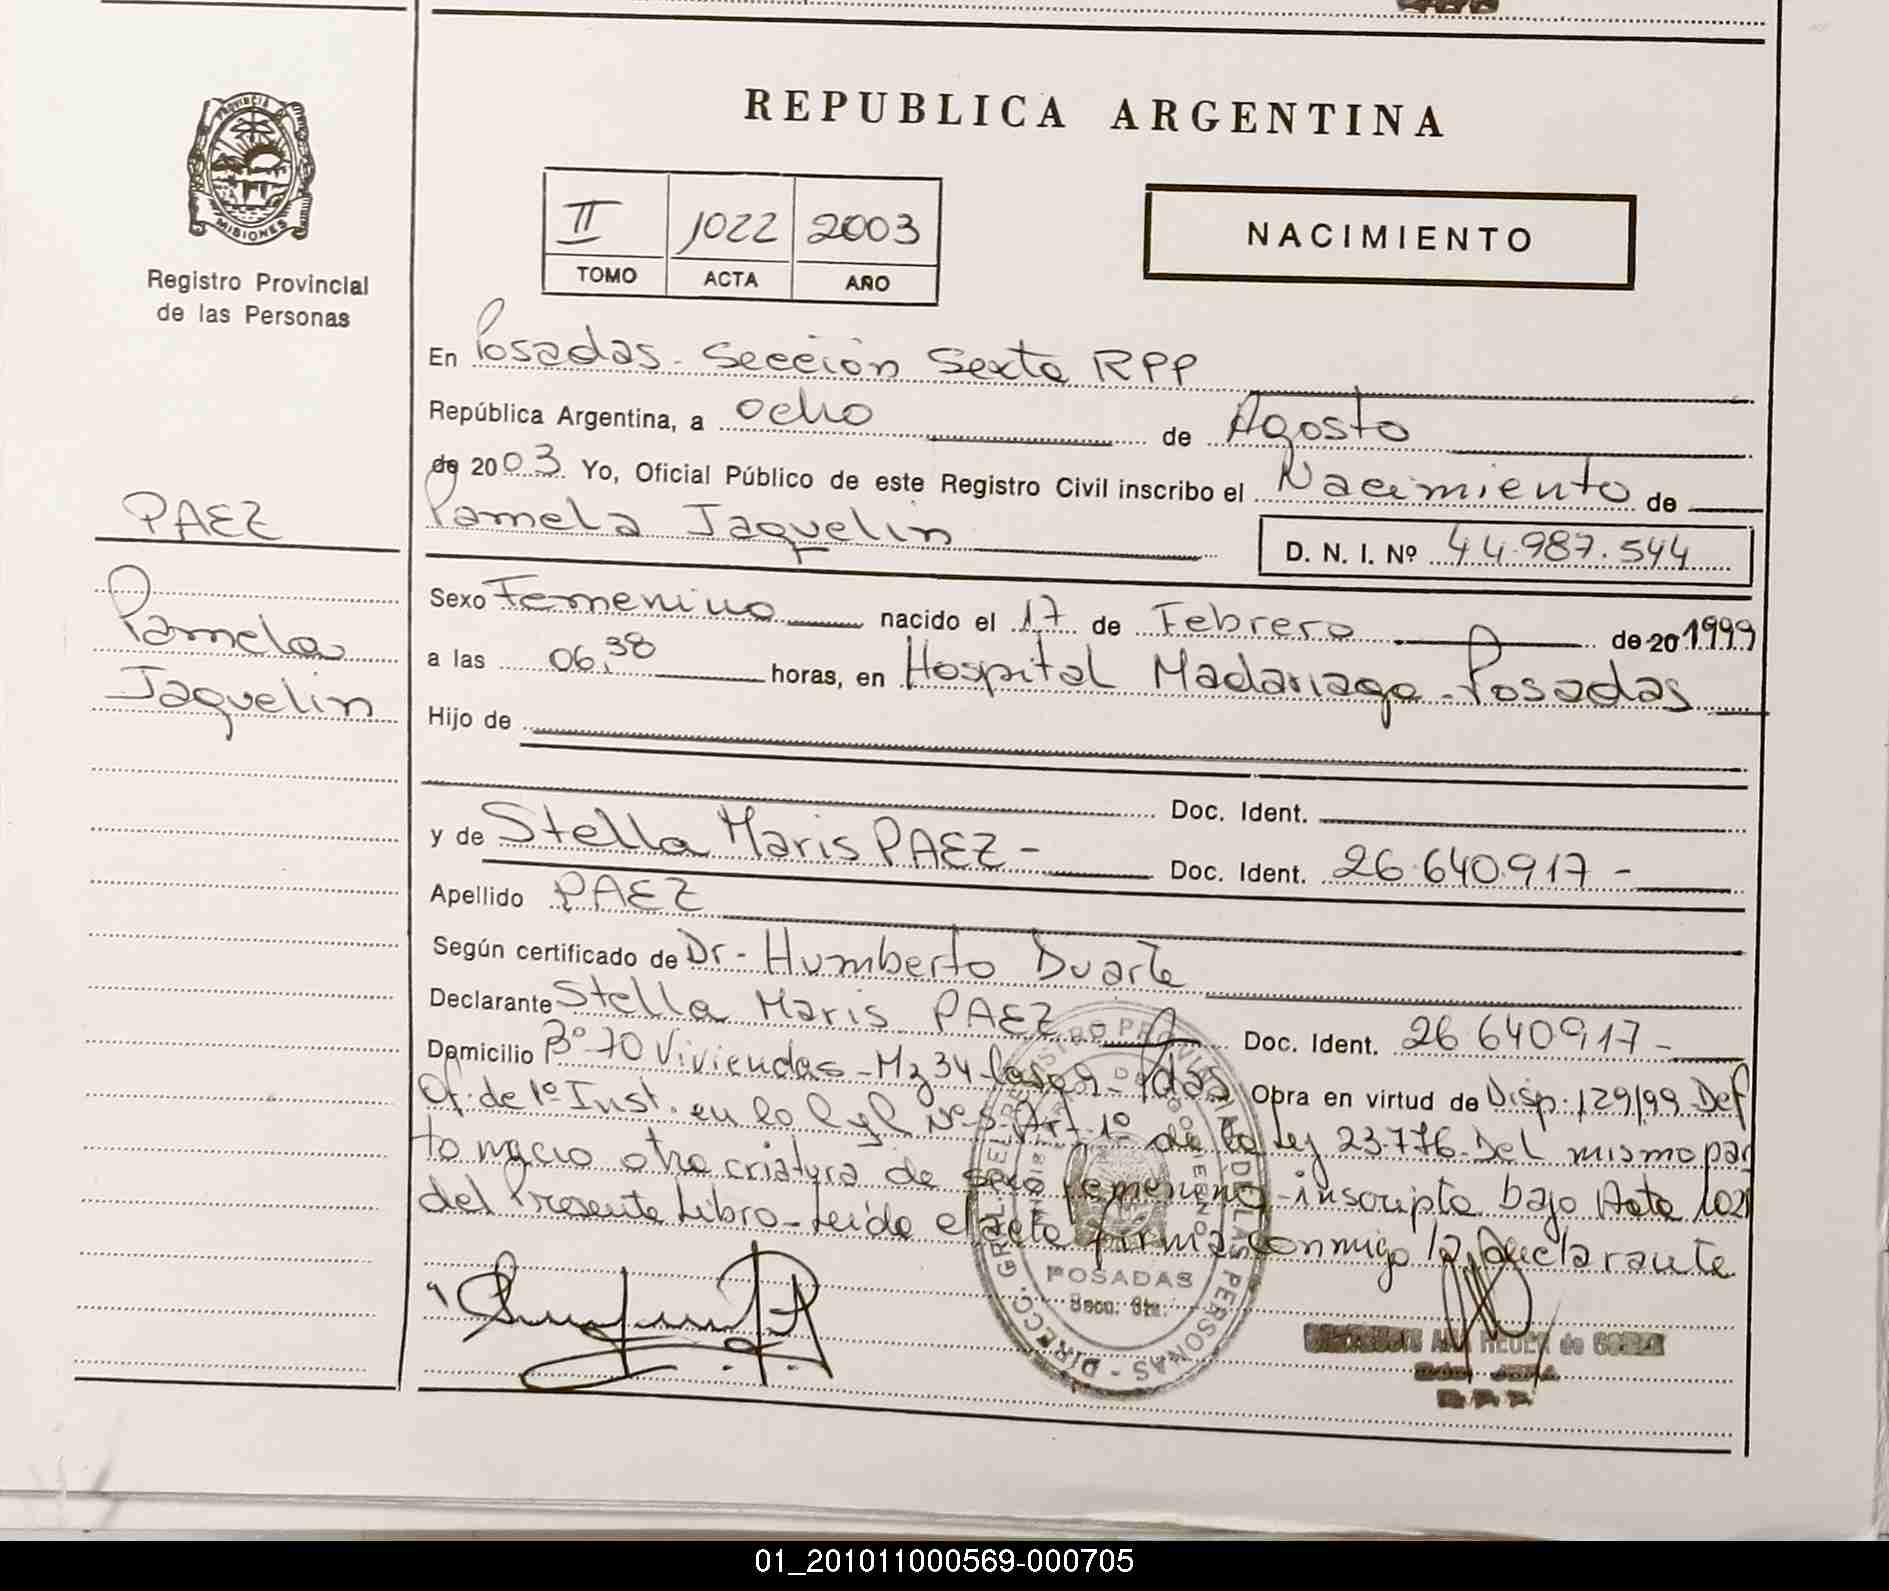 REPUBLICA ARGENTINA
PROVINCIA
MISIONES
Registro Provincial
de las Personas
II 1022 2003
TOMO ACTA AÑO
NACIMIENTO
En Posadas - Sección Sexta RPP
República Argentina, a ocho de Agosto
de 2003 Yo, Oficial Público de este Registro Civil inscribo el Nacimiento de
Pamela Jaquelin D. N. I. Nº 44.987.544
PAEZ
Pamela
Jaquelin
Sexo Femenino nacido el 17 de Febrero de 20 1999
a las 06,38 horas, en Hospital Madariaga - Posadas
Hijo de
Doc. Ident.
y de Stella Maris PAEZ - Doc. Ident. 26.640.917 -
Apellido PAEZ
Según certificado de Dr - Humberto Duarte
Declarante Stella Maris PAEZ - Doc. Ident. 26 640917 -
Domicilio Bº 70 Viviendas - Mz 34 Casa 9 - Pdas Obra en virtud de Disp. 129/99 Def
Of. de 1º Inst. en lo C y C Nº 5 - Art. 1º de la Ley 23.776. Del mismo par
to nacio otra criatura de sexo femenino - inscripta bajo Acta 1021
del Presente Libro - Leída el acta firma conmigo la declarante
DIRECC. GRAL. DEL REGISTRO PROVINCIAL DE LAS PERSONAS
POSADAS
Secc. 6ta.
01_201011000569-000705